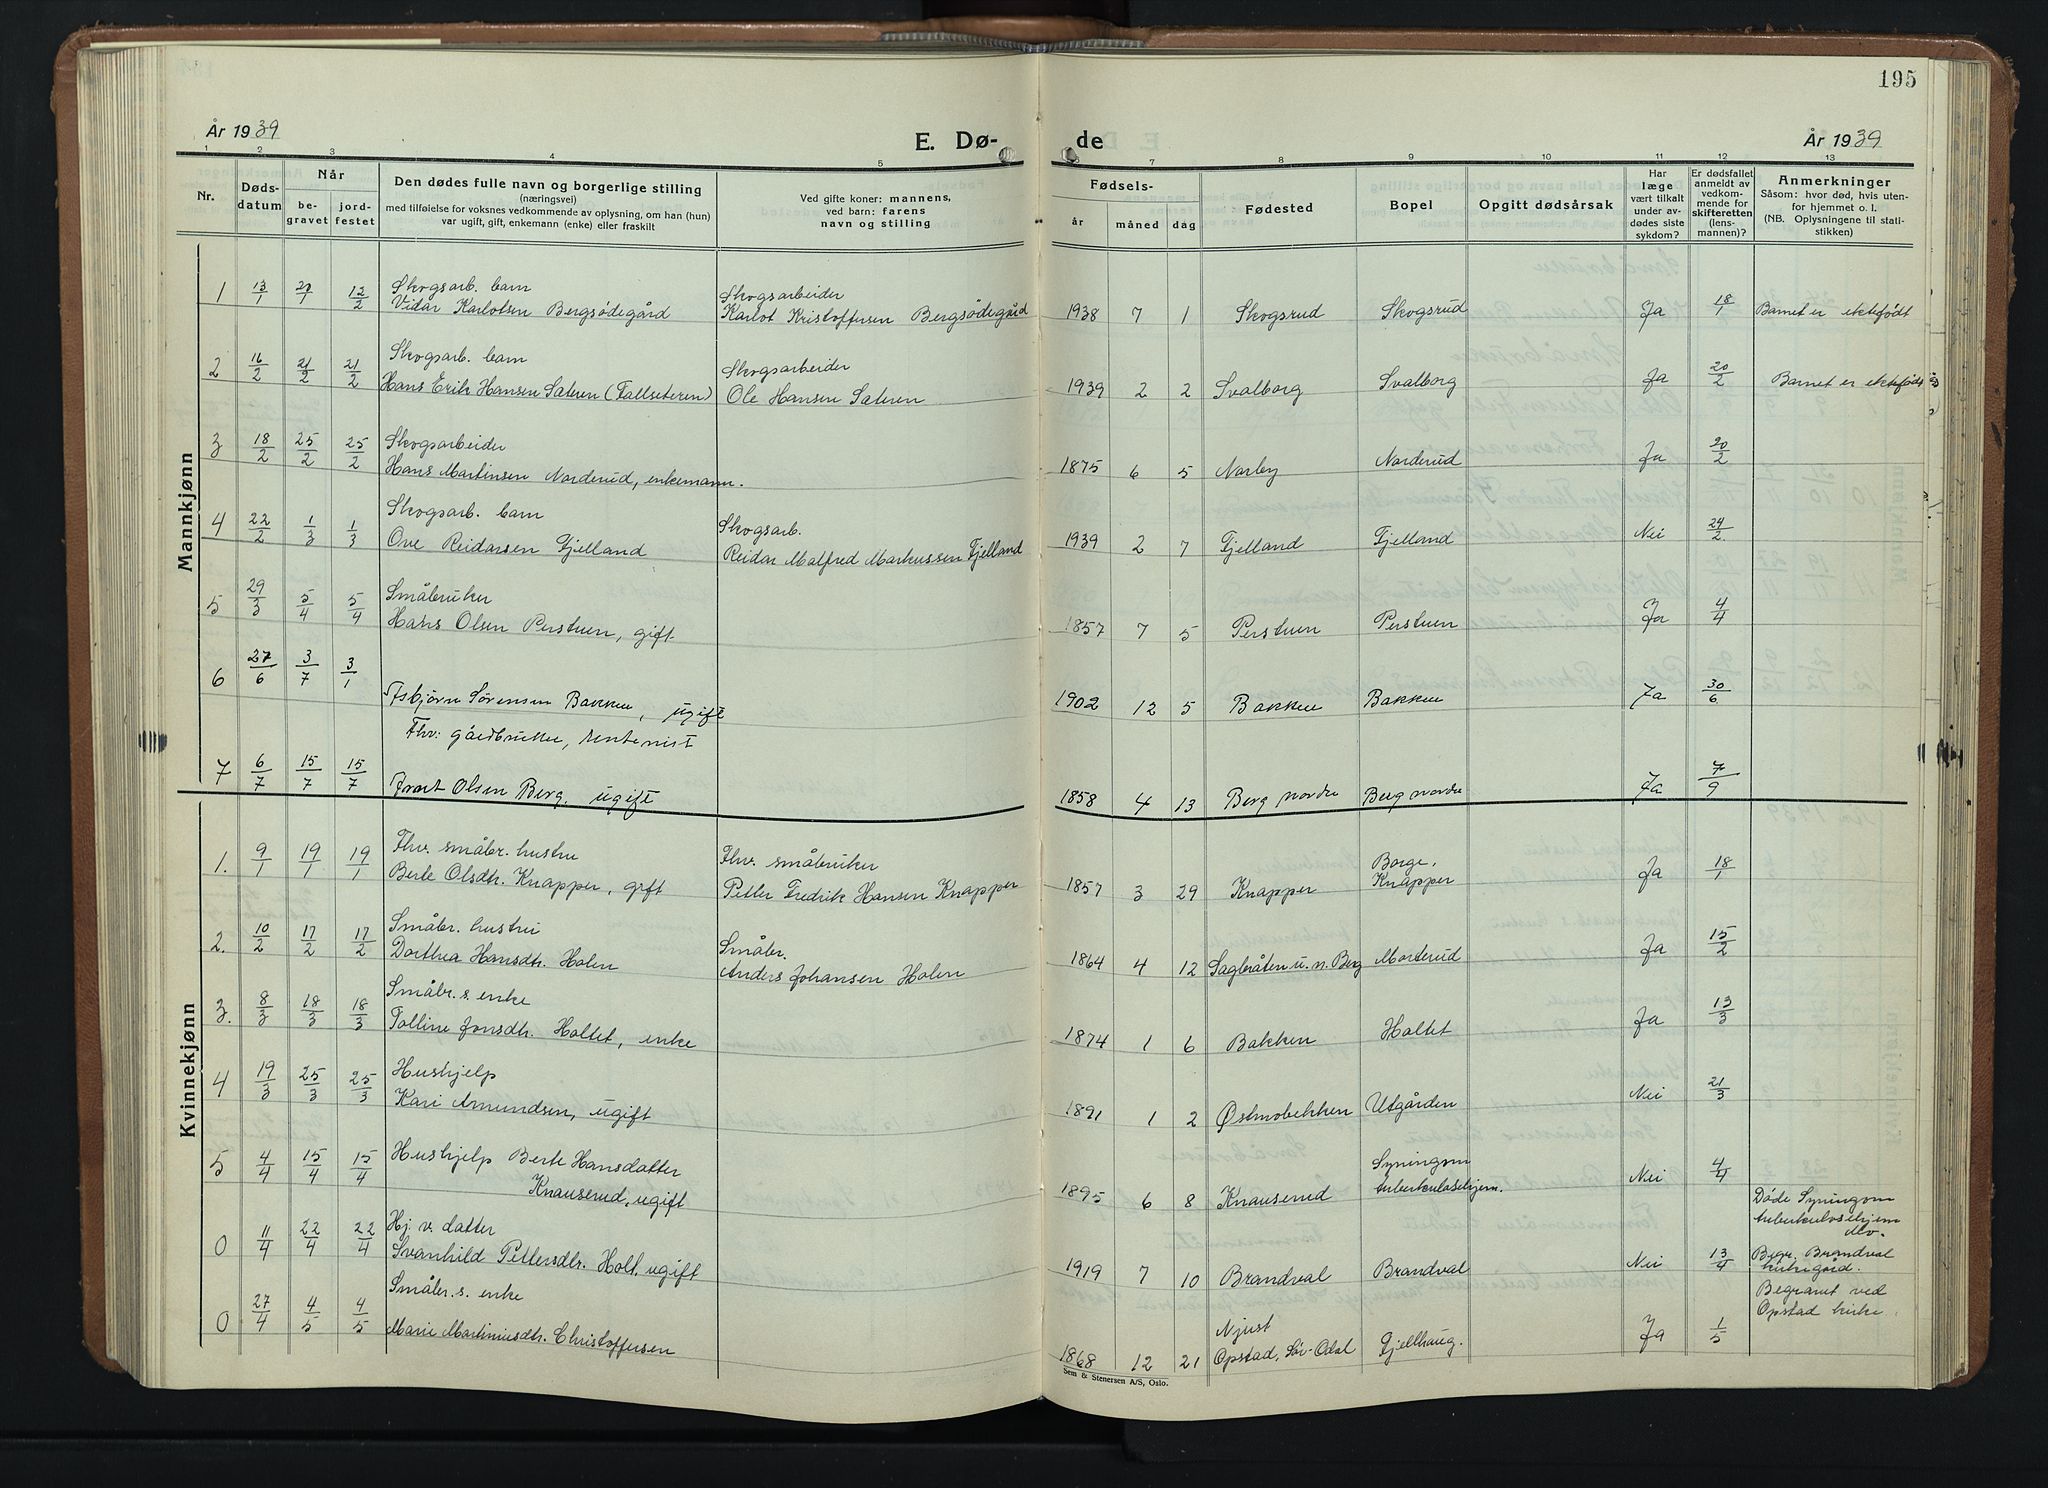 195
År 1939
E. Dø-
de
År 1939
1 2 3 4 5 6 7 8 9 10 11 12 13
Nr.
Døds-
datum
Når
be-
gravet
jord-
festet
Den dødes fulle navn og borgerlige stilling
(næringsvei)
med tilføielse for voksnes vedkommende av oplysning, om han (hun)
var ugift, gift, enkemann (enke) eller fraskilt
Ved gifte koner: mannens,
ved barn: farens
navn og stilling
Fødsels-
år
måned
dag
Fødested
Bopel
Opgitt dødsårsak
Har
læge
vært tilkalt
under av-
dødes siste
sykdom?
Er dødsfallet
anmeldt av
vedkom-
mende for
skifteretten
(lens-
mannen)?
Anmerkninger
Såsom: hvor død, hvis uten-
for hjemmet o. l.
(NB. Oplysningene til stati-
stikken)
Mannkjønn
1 13/1 20/1 12/2 Skogsarb. barn Skogsarbeider
Vidar Karlotsen Bergsødegård Karlot Kristoffersen Bergsødegård 1938 7 1 Skogsrud Skogsrud Ja 18/1 Barnet er ektefødt
2 16/2 21/2 21/2 Skogsarb. barn Skogsarbeider
Hans Erik Hansen Sæteren (Fallseteren) Ole Hansen Sæteren 1939 2 2 Svalborg Svalborg Ja 20/2 Barnet er ektefødt
3 18/2 25/2 25/2 Skogsarbeider
Hans Martinsen Norderud, enkemann. 1875 6 5 Norby Norderud Ja 20/2
4 22/2 1/3 1/3 Skogsarb. barn Skogsarb.
Ove Reidarsen Fjelland Reidar Malfred Markussen Fjelland 1939 2 7 Fjelland Fjelland Nei 24/2
5 29/3 5/4 5/4 Småbruker
Hans Olsen Perstuen, gift 1857 7 5 Perstuen Perstuen Ja 4/4
6 27/6 3/7 3/1
Asbjørn Sørensen Bakken, ugift 1902 12 5 Bakken Bakken Ja 30/6
Fhv: gårdbruker, rentenist
7 6/7 15/7 15/7 Ivart Olsen Berg, ugift 1858 4 13 Berg nordre Berg nordre Ja 7/9
Kvinnekjønn
1. 9/1 19/1 19/1 Fhv. småbr. hustru Fhv. småbruker Borge,
Berte Olsdtr. Knapper, gift Petter Fredrik Hansen Knapper 1857 3 29 Knapper Knapper Ja 18/1
2. 10/2 17/2 17/2 Småbr. hustru Småbr.
Dorthea Hansdtr. Holen Anders Johansen Holen 1864 4 12 Sagbråten u. n. Berg Morterud Ja 15/2
3. 8/3 18/3 18/3 Småbr.s. enke
Golline Jonsdtr. Holtet, enke 1874 1 6 Bakken Holtet Ja 13/3
4 19/3 25/3 25/3 Hushjelp
Kari Amundsen, ugift 1891 1 2 Østmobekken Utgården Nei 21/3
5 4/4 15/4 15/4 Hushjelp Berte Hansdatter Syningom
Knauserud, ugift 1895 6 8 Knauserud tuberkulosehjem. Nei 4/4 Døde Syningom
tuberkulosehjem
0 11/4 22/4 22/4 Hj. v. datter
Svanhild Pettersdtr. Holt, ugift 1919 7 10 Brandval Brandval Nei 13/4 Begr. Brandval
kirkegård.
0 27/4 4/5 4/5 Småbr.s. enke
Marie Martiniusdtr. Christoffersen 1868 12 21 Njust
Opstad, Sør-Odal Fjellhaug. Ja 1/5 Begravet ved
Opstad kirke.
Sem & Stenersen A/S, Oslo.